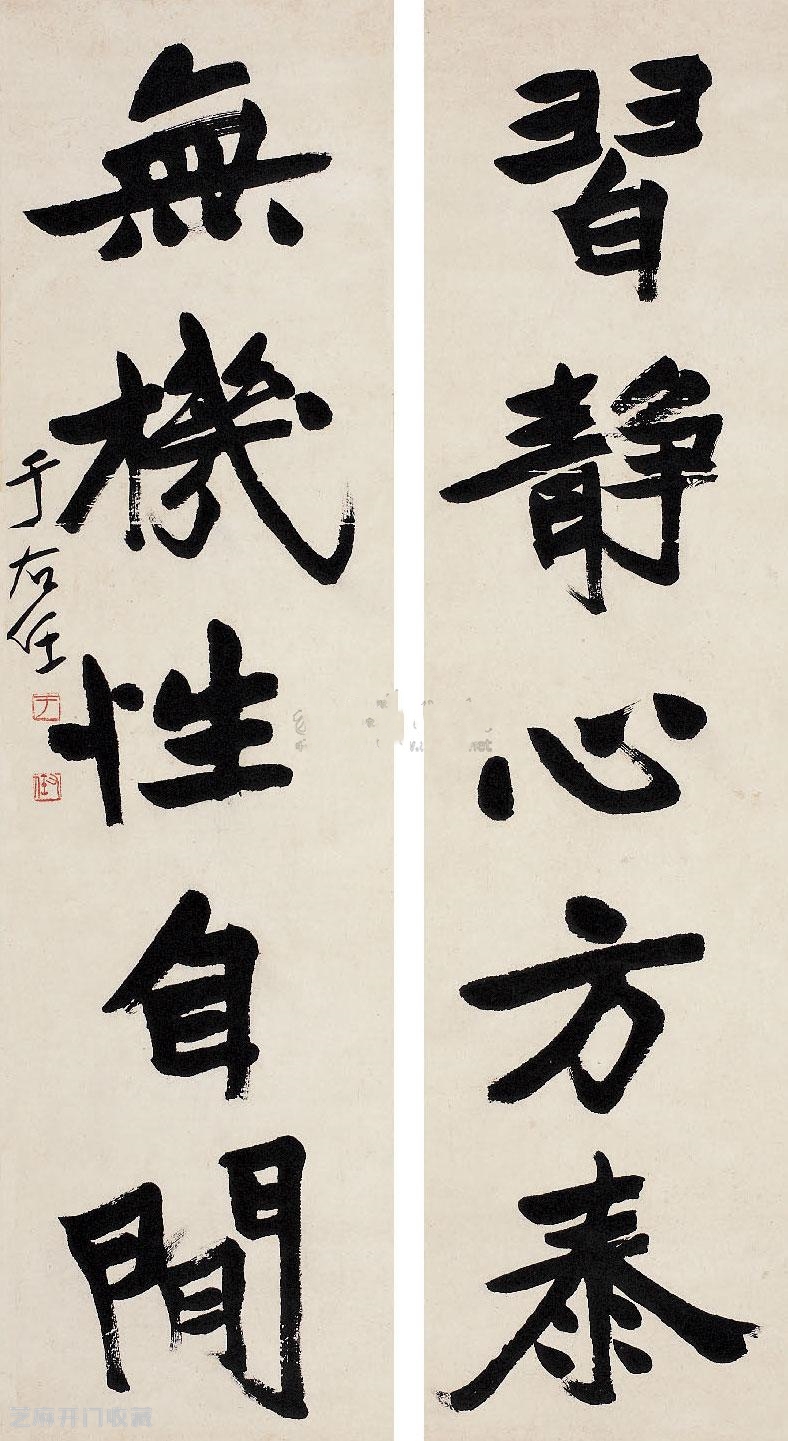 習静心方泰
無機性自閒
于右任
芝麻开门收藏